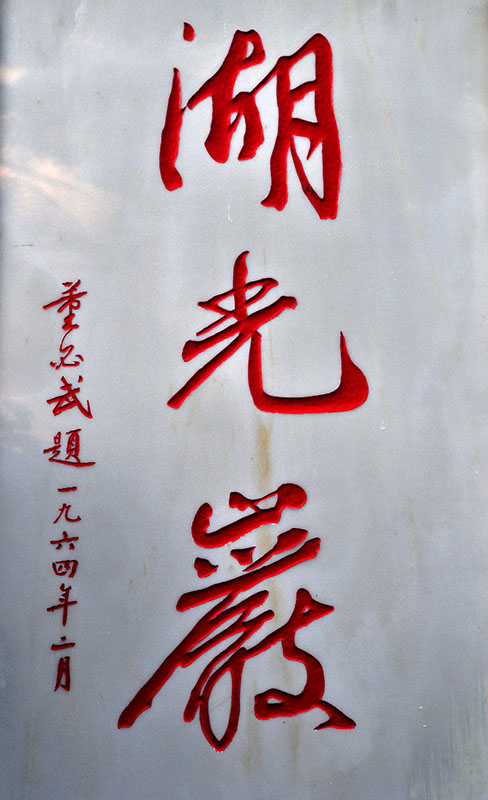 湖光巖
董必武題一九六四年二月